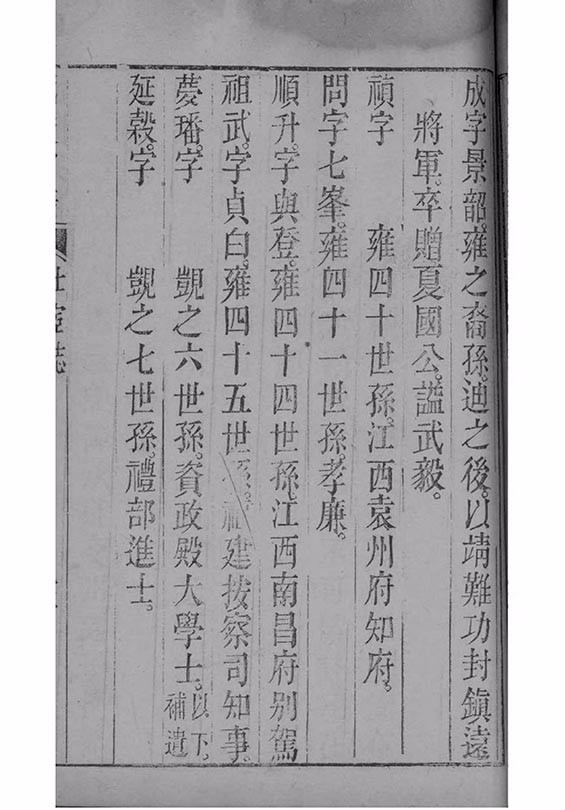 成字景韶。雍之裔孫。迪之後。以靖難功封鎮遠
將軍。卒贈夏國公。諡武毅。
禎字　　雍四十世孫。江西袁州府知府。
問字七峯。雍四十一世孫。孝廉。
順升。字與登。雍四十四世孫。江西南昌府別駕
祖武。字貞白。雍四十五世孫。福建按察司知事。
夢璠。字　　覬之六世孫。資政殿大學士。以下。補遺
延穀。字　　覬之七世孫。禮部進士。
仕宦誌